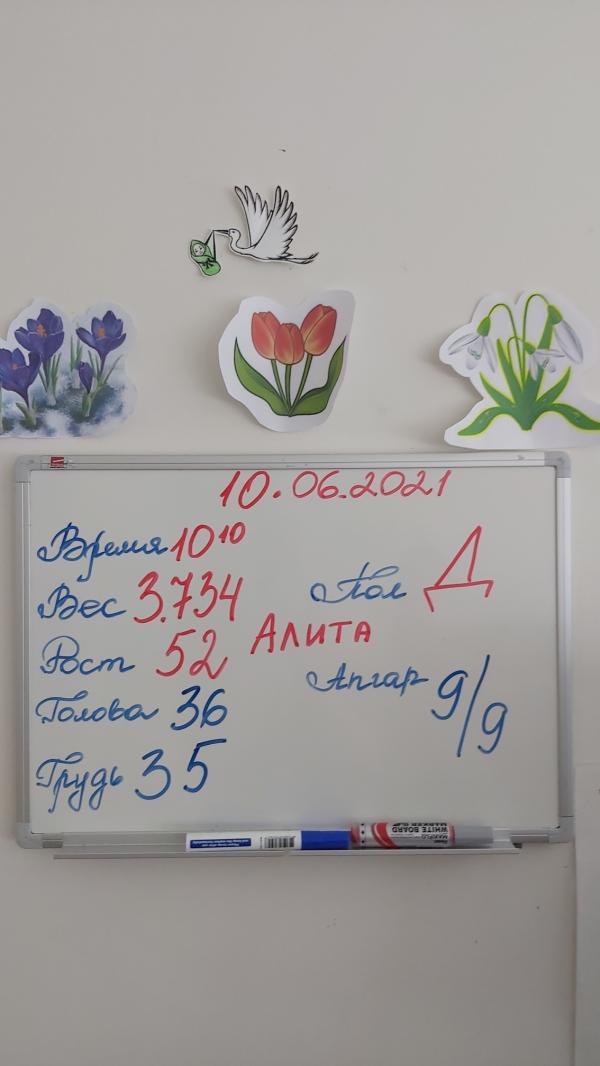 10.06.2021
Время 10¹⁰
Вес 3.734
Рост 52
Голова 36
Грудь 35
Пол Д
АЛИТА
Апгар 9/9
WHITE BOARD
MARKER